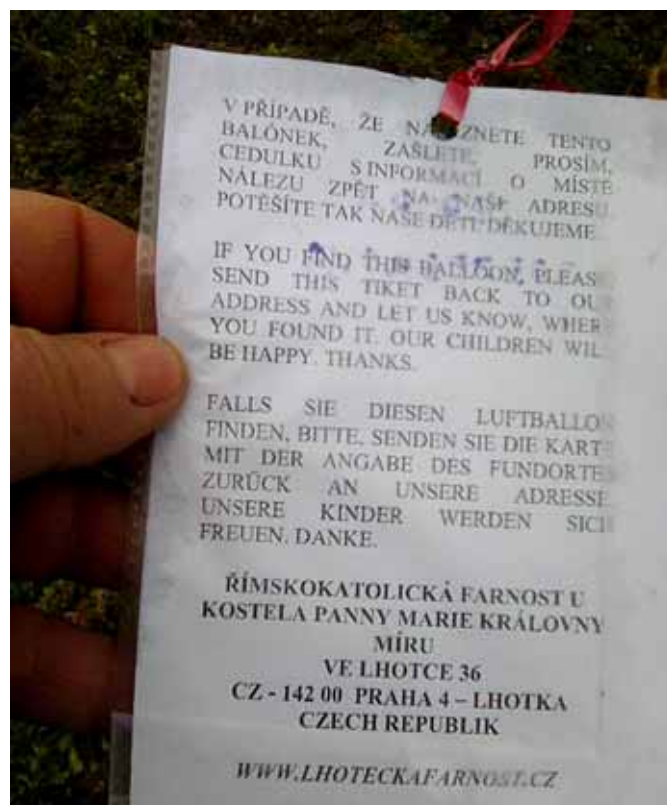 V PŘÍPADĚ, ŽE TENTO
BALÓNEK, ZAŠLETE, PROSÍM,
CEDULKU S INFORMACÍ O MÍSTĚ
NÁLEZU ZPĚT NA NAŠÍ ADRESU.
POTĚŠÍTE TAK NAŠE DĚTI. DĚKUJEME.
IF YOU FIND THIS BALLOON, PLEAS
SEND THIS TIKET BACK TO OU
ADDRESS AND LET US KNOW, WHER
YOU FOUND IT. OUR CHILDREN WIL
BE HAPPY. THANKS.
FALLS SIE DIESEN LUFTBALLON
FINDEN, BITTE, SENDEN SIE DIE KART
MIT DER ANGABE DES FUNDORTES
ZURÜCK AN UNSERE ADRESSE
UNSERE KINDER WERDEN SICH
FREUEN. DANKE.
ŘÍMSKOKATOLICKÁ FARNOST U
KOSTELA PANNY MARIE KRÁLOVNY
MÍRU
VE LHOTCE 36
CZ - 142 00 PRAHA 4 – LHOTKA
CZECH REPUBLIK
WWW.LHOTECKAFARNOST.CZ